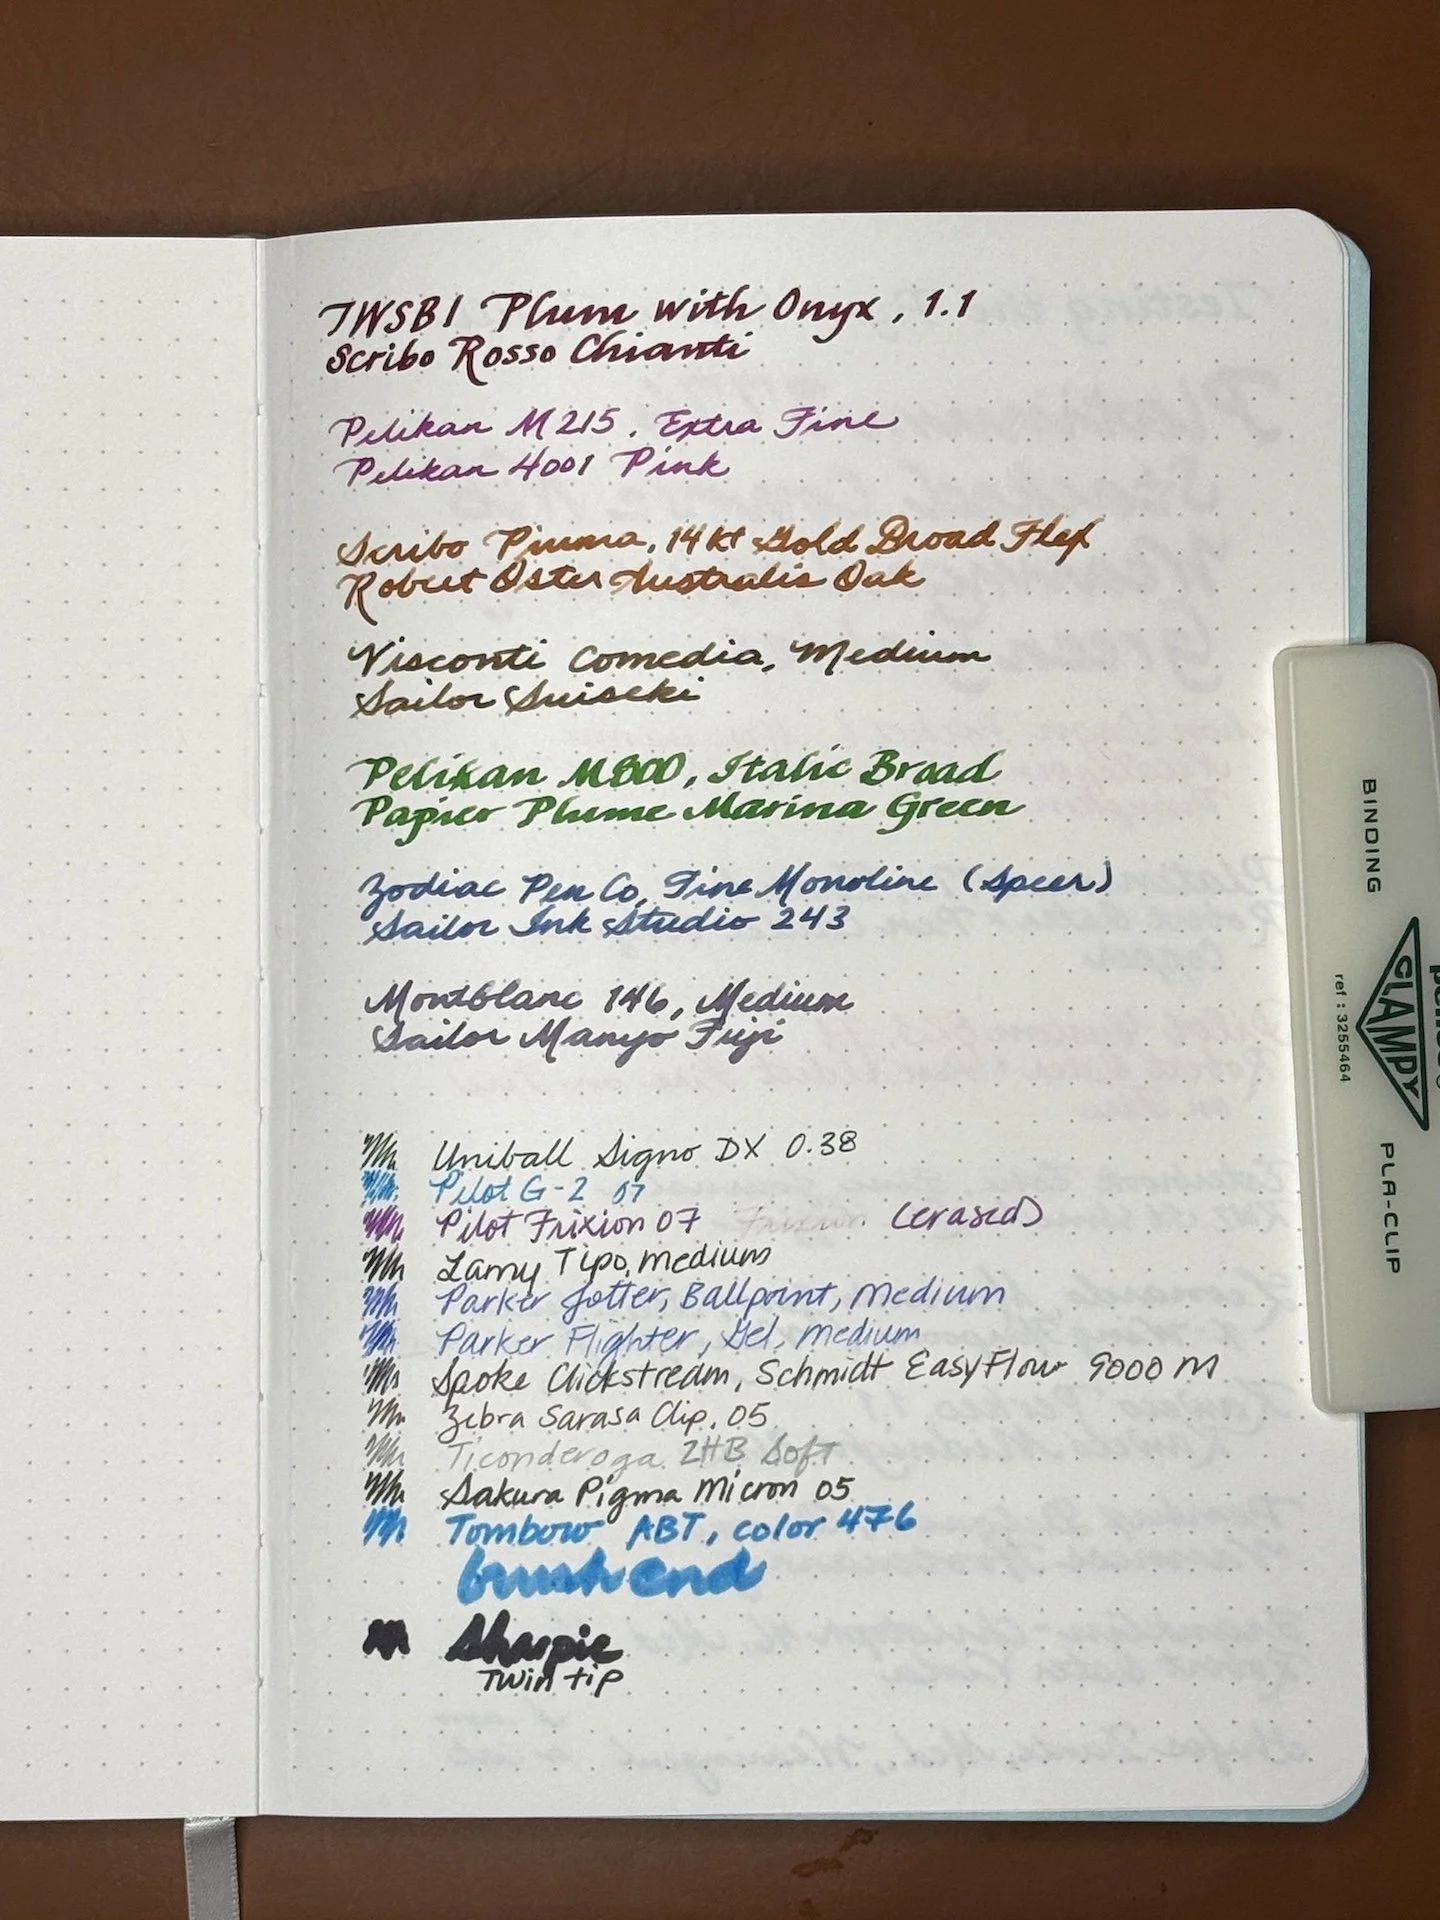 TWSBI Plum with Onyx, 1.1
Scribo Rosso Chianti
Pelikan M215, Extra Fine
Pelikan 4001 Pink
Scribo Piuma, 14kt Gold Broad Flex
Robert Oster Australis Oak
Visconti Comedia, Medium
Sailor Suiseki
Pelikan M800, Italic Broad
Papier Plume Marina Green
Zodiac Pen Co, Fine Monoline (Speer)
Sailor Ink Studio 243
Montblanc 146, Medium
Sailor Manyo Fuji
Uniball Signo DX 0.38
Pilot G-2 07
Pilot Frixion 07 Frixion (erased)
Lamy Tipo, medium
Parker Jotter, Ballpoint, Medium
Parker Flighter, Gel, medium
Spoke Clickstream, Schmidt EasyFlow 9000 M
Zebra Sarasa Clip, 05
Ticonderoga 2HB Soft
Sakura Pigma Micron 05
Tombow ABT, color 476
brush end
Sharpie
Twin tip
BINDING
CLAMPY
ref : 3255464
PLA-CLIP